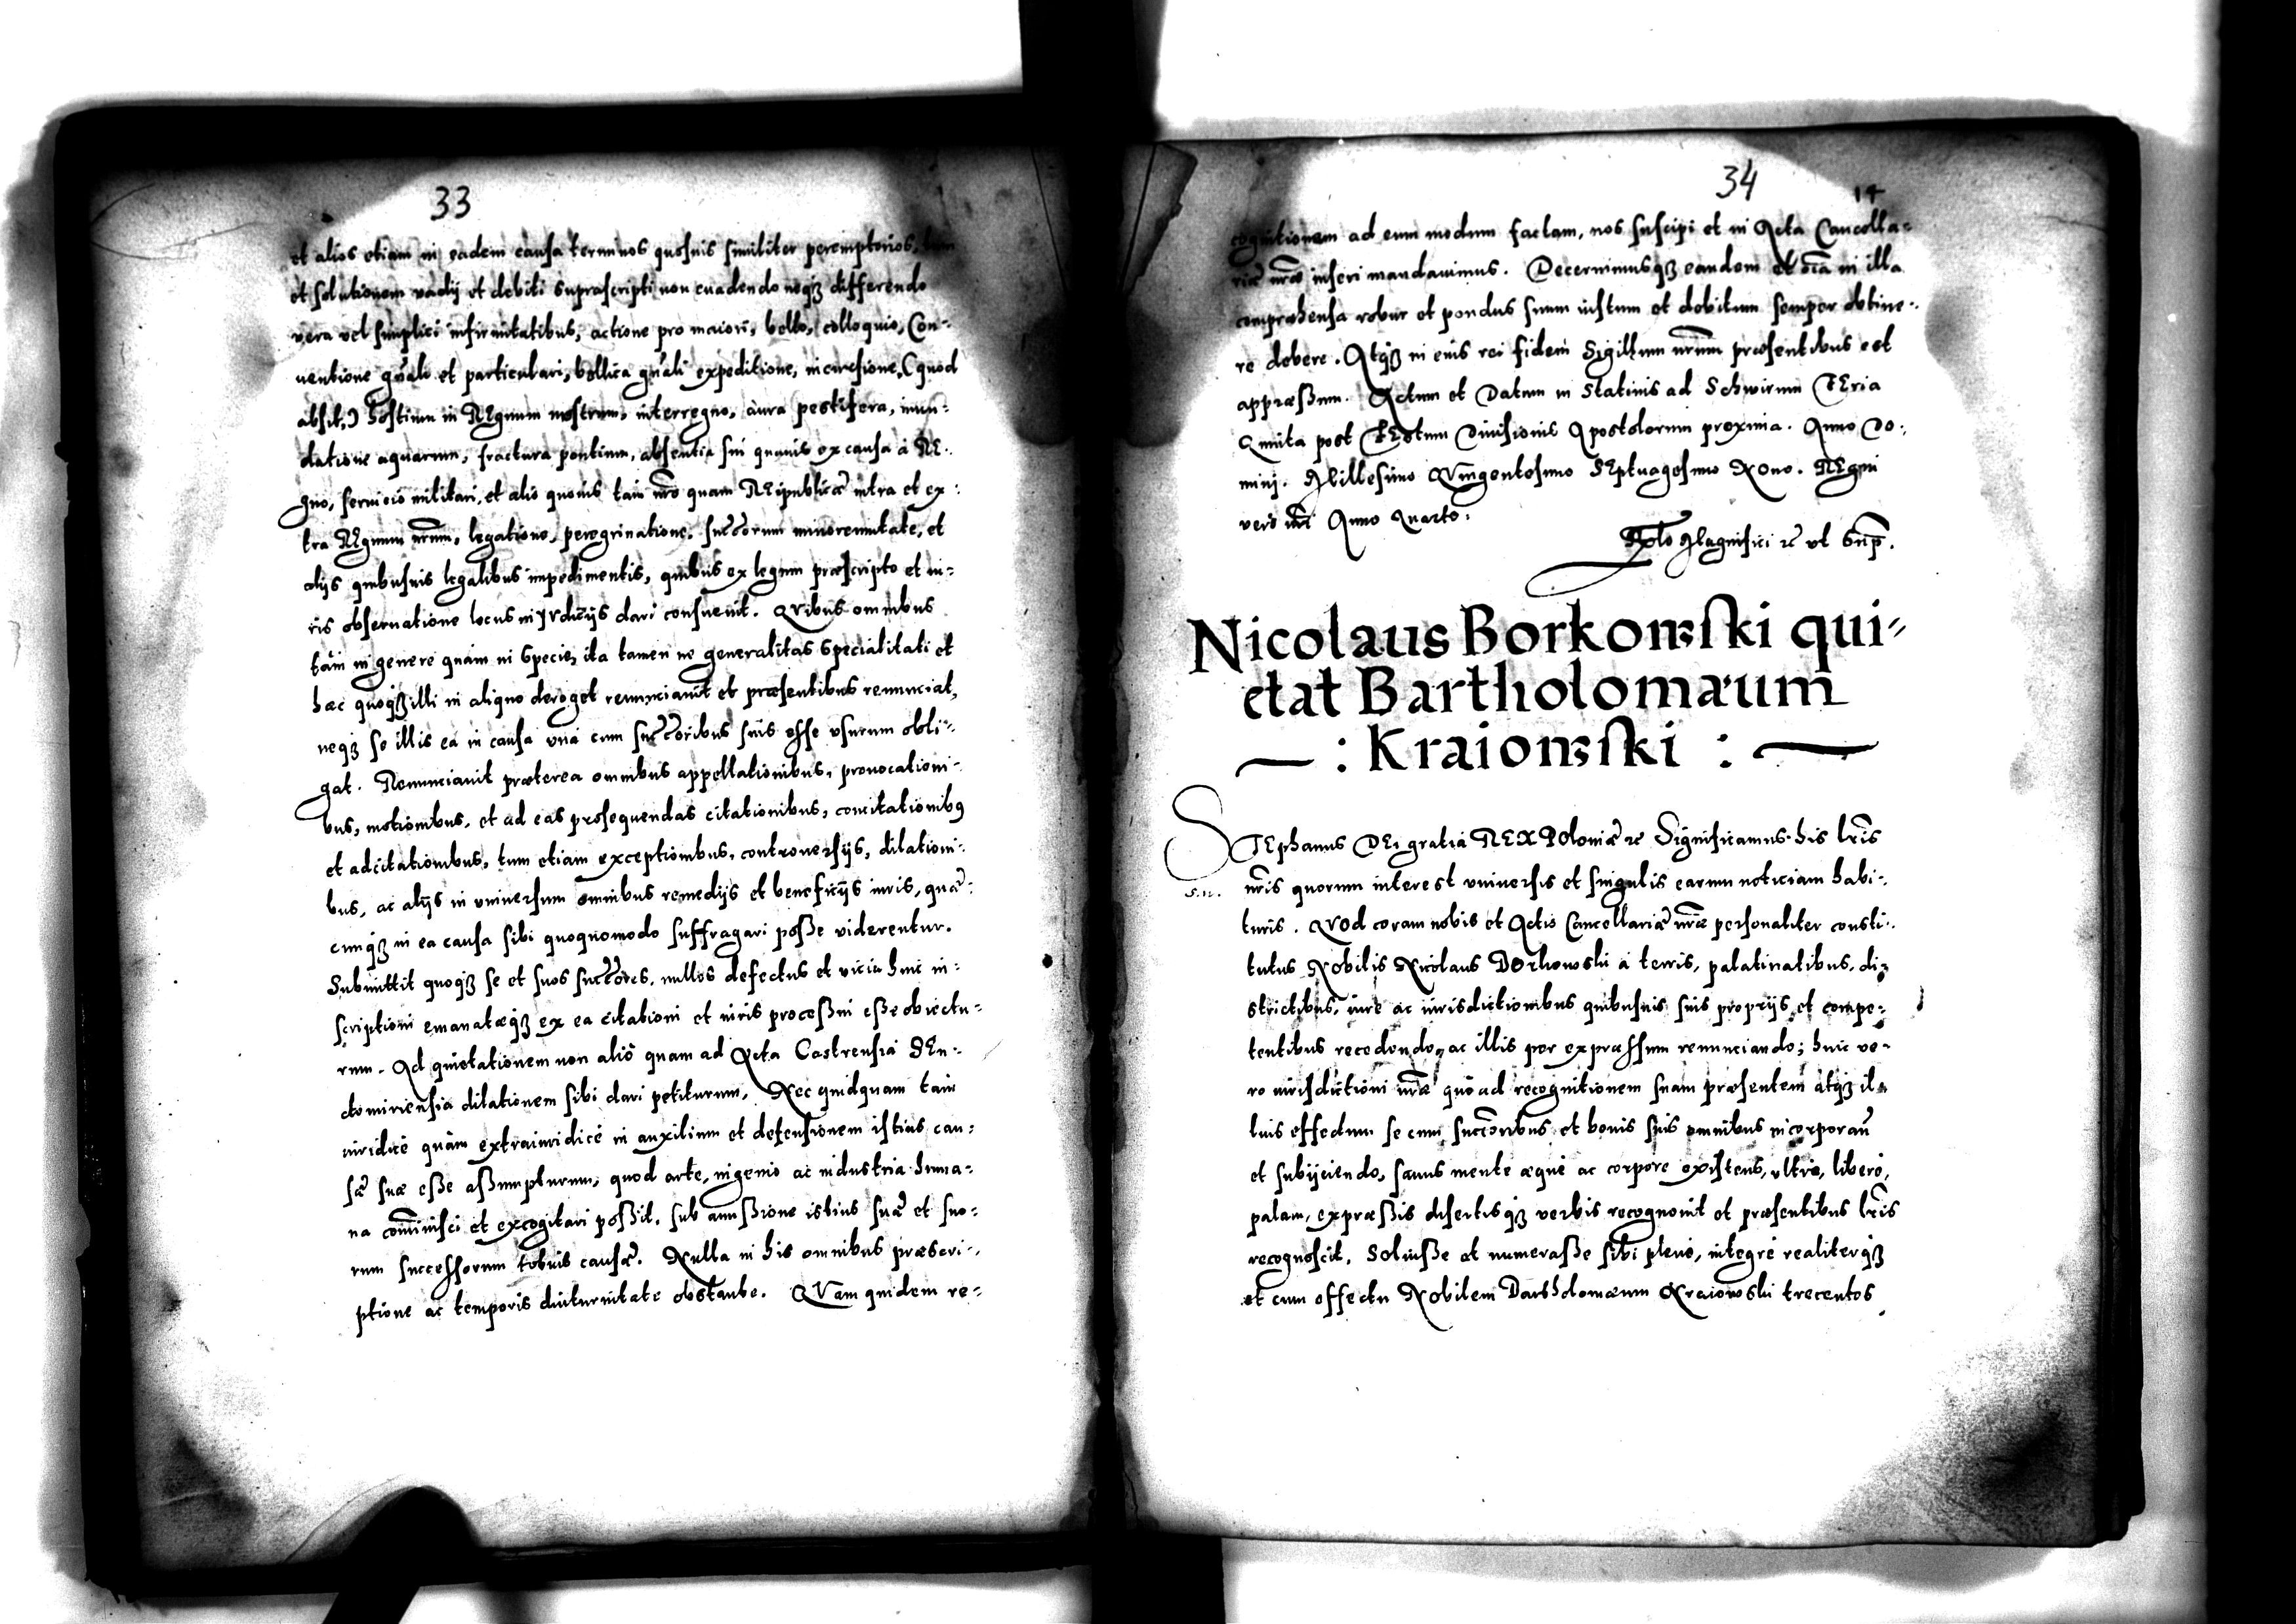 33
et alios etiam in eadem causa terminos quosuis similiter peremptorios, tum
et solutionem vadij et debiti suprascripti non euadendo neqꝫ differendo
vera vel simplici infirmitatibus, actione pro maiori, bello, colloquio, Con-
uentione gñali et particulari, bellica gñali expeditione, incursione, (quod
absit,) hostium in REgnum nostrum, interregno, aura pestifera, inun-
datione aquarum, fractura pontium, absentia sui quauis ex causa à RE-
gno, seruicio militari, et alio quouis tam nr̃o quam REipublicæ intra et ex-
tra REgnum nrũm, legatione, peregrinatione, succorum minorennitate, et
alijs quibusuis legalibus impedimentis, quibus ex legum præscripto et iu-
ris obseruatione locus in Iudicijs dari consueuit. QVibus omnibus
tam in genere quam in specie, ita tamen ne generalitas specialitati et
hæc quoqꝫ illi in aliquo deroget renunciauit et præsentibus renunciat,
neqꝫ se illis ea in causa vnà cum succoribus suis esse vsurum obli-
gat. Renunciauit præterea omnibus appellationibus, prouocationi-
bus, motionibus, et ad eas prosequendas citationibus, concitationibꝰ
et adcitationibus, tum etiam exceptionibus, controuersijs, dilationi-
bus, ac alijs in vniuersum omnibus remedijs et beneficijs iuris, quæ-
cunqꝫ in ea causa sibi quoquomodo suffragari posse viderentur.
Submittit quoqꝫ se et suos succores, nullos defectus et vicia huic in-
scriptioni emanatæqꝫ ex ea citationi et iuris processui esse obiectu-
rum. Ad quietationem non aliò quam ad Acta Castrensia SEn-
domiriensia dilationem sibi dari petiturum, Nec quidquam tam
iuridicè quàm extraiuridicè in auxilium et defensionem istius cau-
sæ suæ esse assumpturum, quod arte, ingenio ac industria huma-
na com̃inisci et excogitari possit, sub amissione istius suæ et suo-
rum successorum totius causæ. Nulla in his omnibus præscri-
ptione ac temporis diuturnitate obstante. QVam quidem re-
34
14
cognitionem ad eum modum factam, nos suscipi et in Acta Cancella-
riæ nr̃æ inseri mandauimus. Decernimusqꝫ eandem et oĩa in illa
compræhensa robur et pondus suum iustum et debitum semper obtine-
re debere. Atqꝫ in eius rei fidem Sigillum nrũm præsentibus est
appræssum. Actum et Datum in Statiuis ad Schwirum FEria
Quinta post FEstum Diuisionis Apostolorum proxima. Anno Do-
mini. Millesimo QVingentesimo SEptuagesimo Nono. REgni
vero nr̃i Anno Quarto.
Rel̃o Magnifici ꝛc̃ vt sup̃.
Nicolaus Borkowski qui-
etat Bartholomæum
: Kraiowski :
STEphanus DEi gratia REX POloniæ ꝛc̃ Significamus his lr̃is
nr̃is quorum interest vniuersis et singulis earum noticiam habi-
turis. QVod coram nobis et Actis Cancellariæ nr̃æ personaliter consti-
tutus Nobilis Nicolaus Borkowski à terris, palatinatibus, di-
strictibus, iure ac iurisdictionibus quibusuis suis proprijs et compe-
tentibus recedendo, ac illis per expræssum renunciando; huic ve-
ro iurisdictioni nr̃æ quo ad recognitionem suam præsentem atqꝫ il-
lius effectum se cum succoribus et bonis suis omnibus incorporañ
et subijciendo, sanus mente æquè ac corpore existens, vltrò, liberè,
palam, expræssis disertisqꝫ verbis recognouit et præsentibus lr̃is
recognoscit. Soluisse et numerasse sibi plenè, integrè realiterqꝫ
et cum effectu Nobilem Bartholomæum Kraiowski trecentos